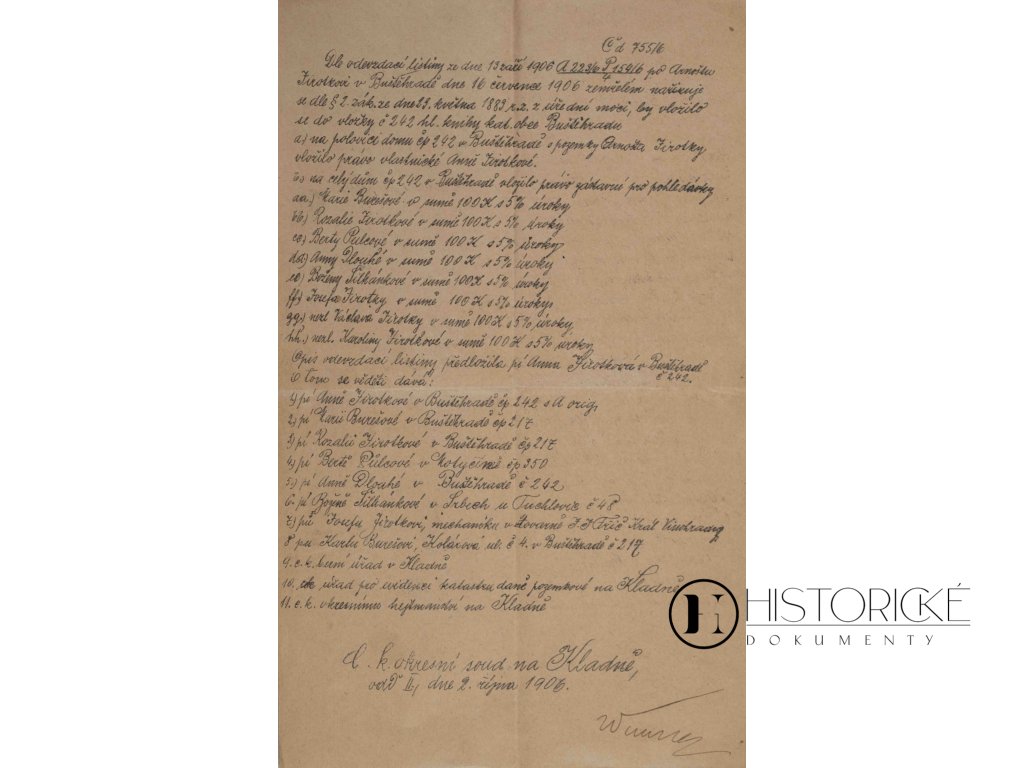 Čd 755/6
Dle odevzdací listiny ze dne 13 září 1906 A 223/6 P 159/6 po Arnoštu
Jirotkovi v Buštěhradě dne 16 července 1906 zemřelém nařizuje
se dle § 2. zák. ze dne 23. května 1883 ř.z. z úřední moci, by vložilo
se do vložky č 242 hl. knihy kat. obce Buštěhradu
a.) na polovici domu čp 242 v Buštěhradě s pozemky Arnošta Jirotky
vložilo právo vlastnické Anně Jirotkové.
b.) na celý dům čp 242 v Buštěhradě vložilo právo zástavní pro pohledávky
aa.) Marie Burešové v sumě 100 K s 5% úroky
bb.) Rozalie Jirotkové v sumě 100 K s 5% úroky
cc.) Berty Pulcové v sumě 100 K s 5% úroky
dd.) Anny Dlouhé v sumě 100 K s 5% úroky
ee.) Boženy Šilhánkové v sumě 100 K s 5% úroky
ff.) Josefa Jirotky v sumě 100 K s 5% úroky
gg.) nezl Václava Jirotky v sumě 100 K s 5% úroky
hh.) nezl. Karoliny Jirotkové v sumě 100 K s 5% úroky
Opis odevzdací listiny předložila pí Anna Jirotková v Buštěhradě
č 242.
O tom se věděti dává:
1.) pí Anně Jirotkové v Buštěhradě čp 242 s A orig.
2.) pí Marii Burešové v Buštěhradě čp 217
3.) pí Rozalii Jirotkové v Buštěhradě čp 217
4.) pí Bertě Pulcové v čp 350
5.) pí Anně Dlouhé v Buštěhradě č 242
6. pí Boženě Šilhánkové v Srbech u Tuchlovic č 48
7.) pu Josefu Jirotkovi, mechaniku v továrně Král Vinohrady
8 pu Burešovi, Kolárova ul. č 4. v Buštěhradě č 217
9. c. k. berní úřad v Kladně
10. ck úřad pro evidenci katastru daně pozemkové na Kladně
11. c. k. okresnímu hejtmanství na Kladně
C. k. okresní soud na Kladně,
odd II, dne 2. října 1906.
HISTORICKÉ
DOKUMENTY